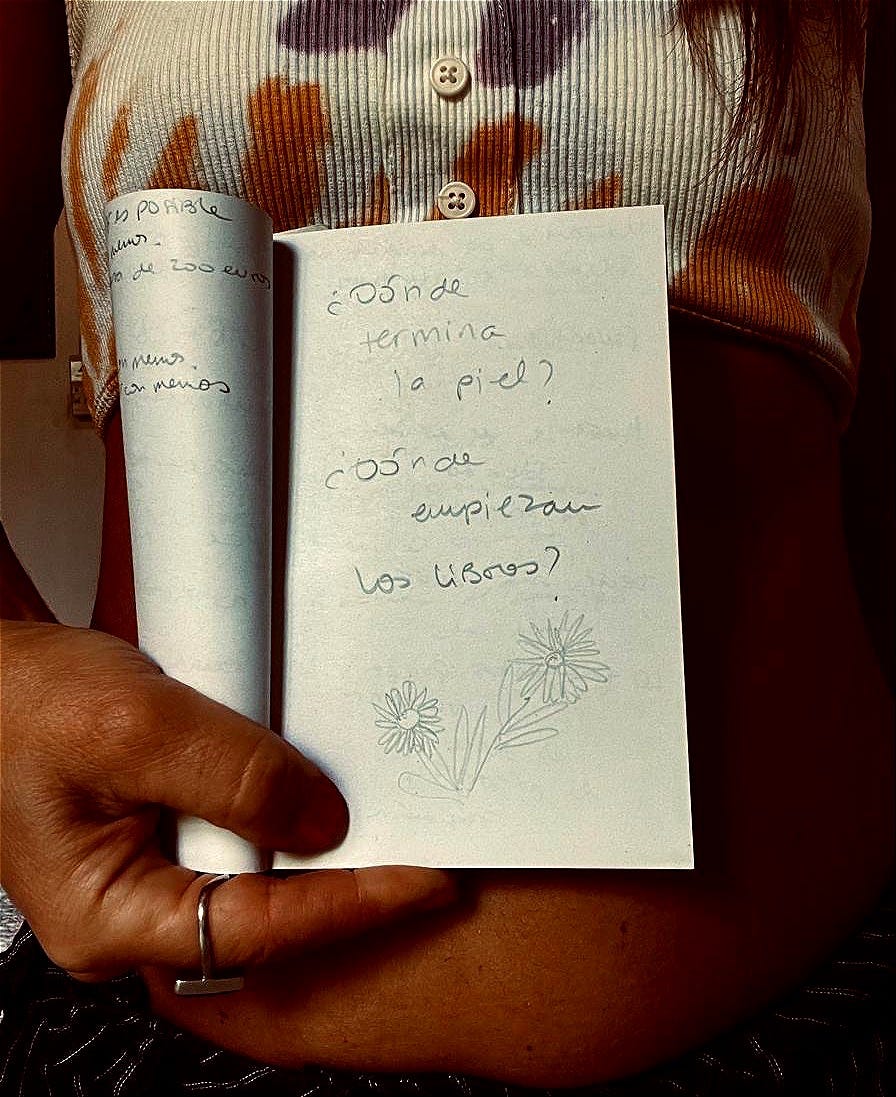 es POSIBLE
menos.
de 200 euros
menos.
con menos
¿Dónde
termina
la piel?
¿Dónde
empiezan
los libros?